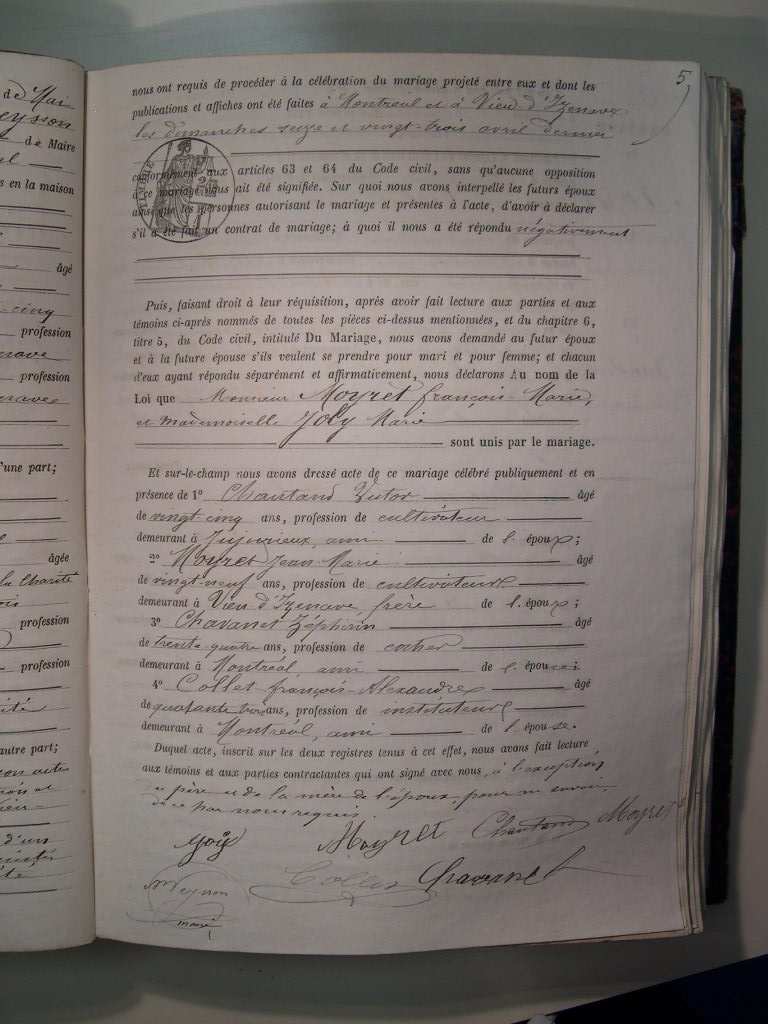 de Mai
eysson
de Maire
s en la maison
âgé
cinq
profession
profession
'une part;
âgée
la Charité
profession
profession
autre part;
d'un
5
nous ont requis de procéder à la célébration du mariage projeté entre eux et dont les
publications et affiches ont été faites à Montréal et à Vieu d'Izenave
les dimanches seize et vingt-trois avril dernier
conformément aux articles 63 et 64 du Code civil, sans qu'aucune opposition
à ce mariage nous ait été signifiée. Sur quoi nous avons interpellé les futurs époux
ainsi que les personnes autorisant le mariage et présentes à l'acte, d'avoir à déclarer
s'il a été fait un contrat de mariage; à quoi il nous a été répondu négativement
Puis, faisant droit à leur réquisition, après avoir fait lecture aux parties et aux
témoins ci-après nommés de toutes les pièces ci-dessus mentionnées, et du chapitre 6,
titre 5, du Code civil, intitulé Du Mariage, nous avons demandé au futur époux
et à la future épouse s'ils veulent se prendre pour mari et pour femme; et chacun
d'eux ayant répondu séparément et affirmativement, nous déclarons Au nom de la
Loi que Monsieur Moyret françois-Marie,
et mademoiselle Joly Marie
sont unis par le mariage.
Et sur-le-champ nous avons dressé acte de ce mariage célébré publiquement et en
présence de 1° Chautand Victor âgé
de vingt-cinq ans, profession de cultivateur
demeurant à Jujurieux, ami de l'époux;
2° Moyret Jean-Marie âgé
de vingt-neuf ans, profession de cultivateur
demeurant à Vieu d'Izenave, frère de l'époux;
3° Chavanet Zéphirin âgé
de trente-quatre ans, profession de cocher
demeurant à Montréal, ami de l'épouse;
4° Collet françois-Alexandre âgé
de quarante trois ans, profession de instituteur
demeurant à Montréal, ami de l'épouse.
Duquel acte, inscrit sur les deux registres tenus à cet effet, nous avons fait lecture
aux témoins et aux parties contractantes qui ont signé avec nous, à l'exception
père et de la mère de l'époux, pour
de ce par nous requis.
Joly Moyret Chautand Moyret
Collet Chavanet